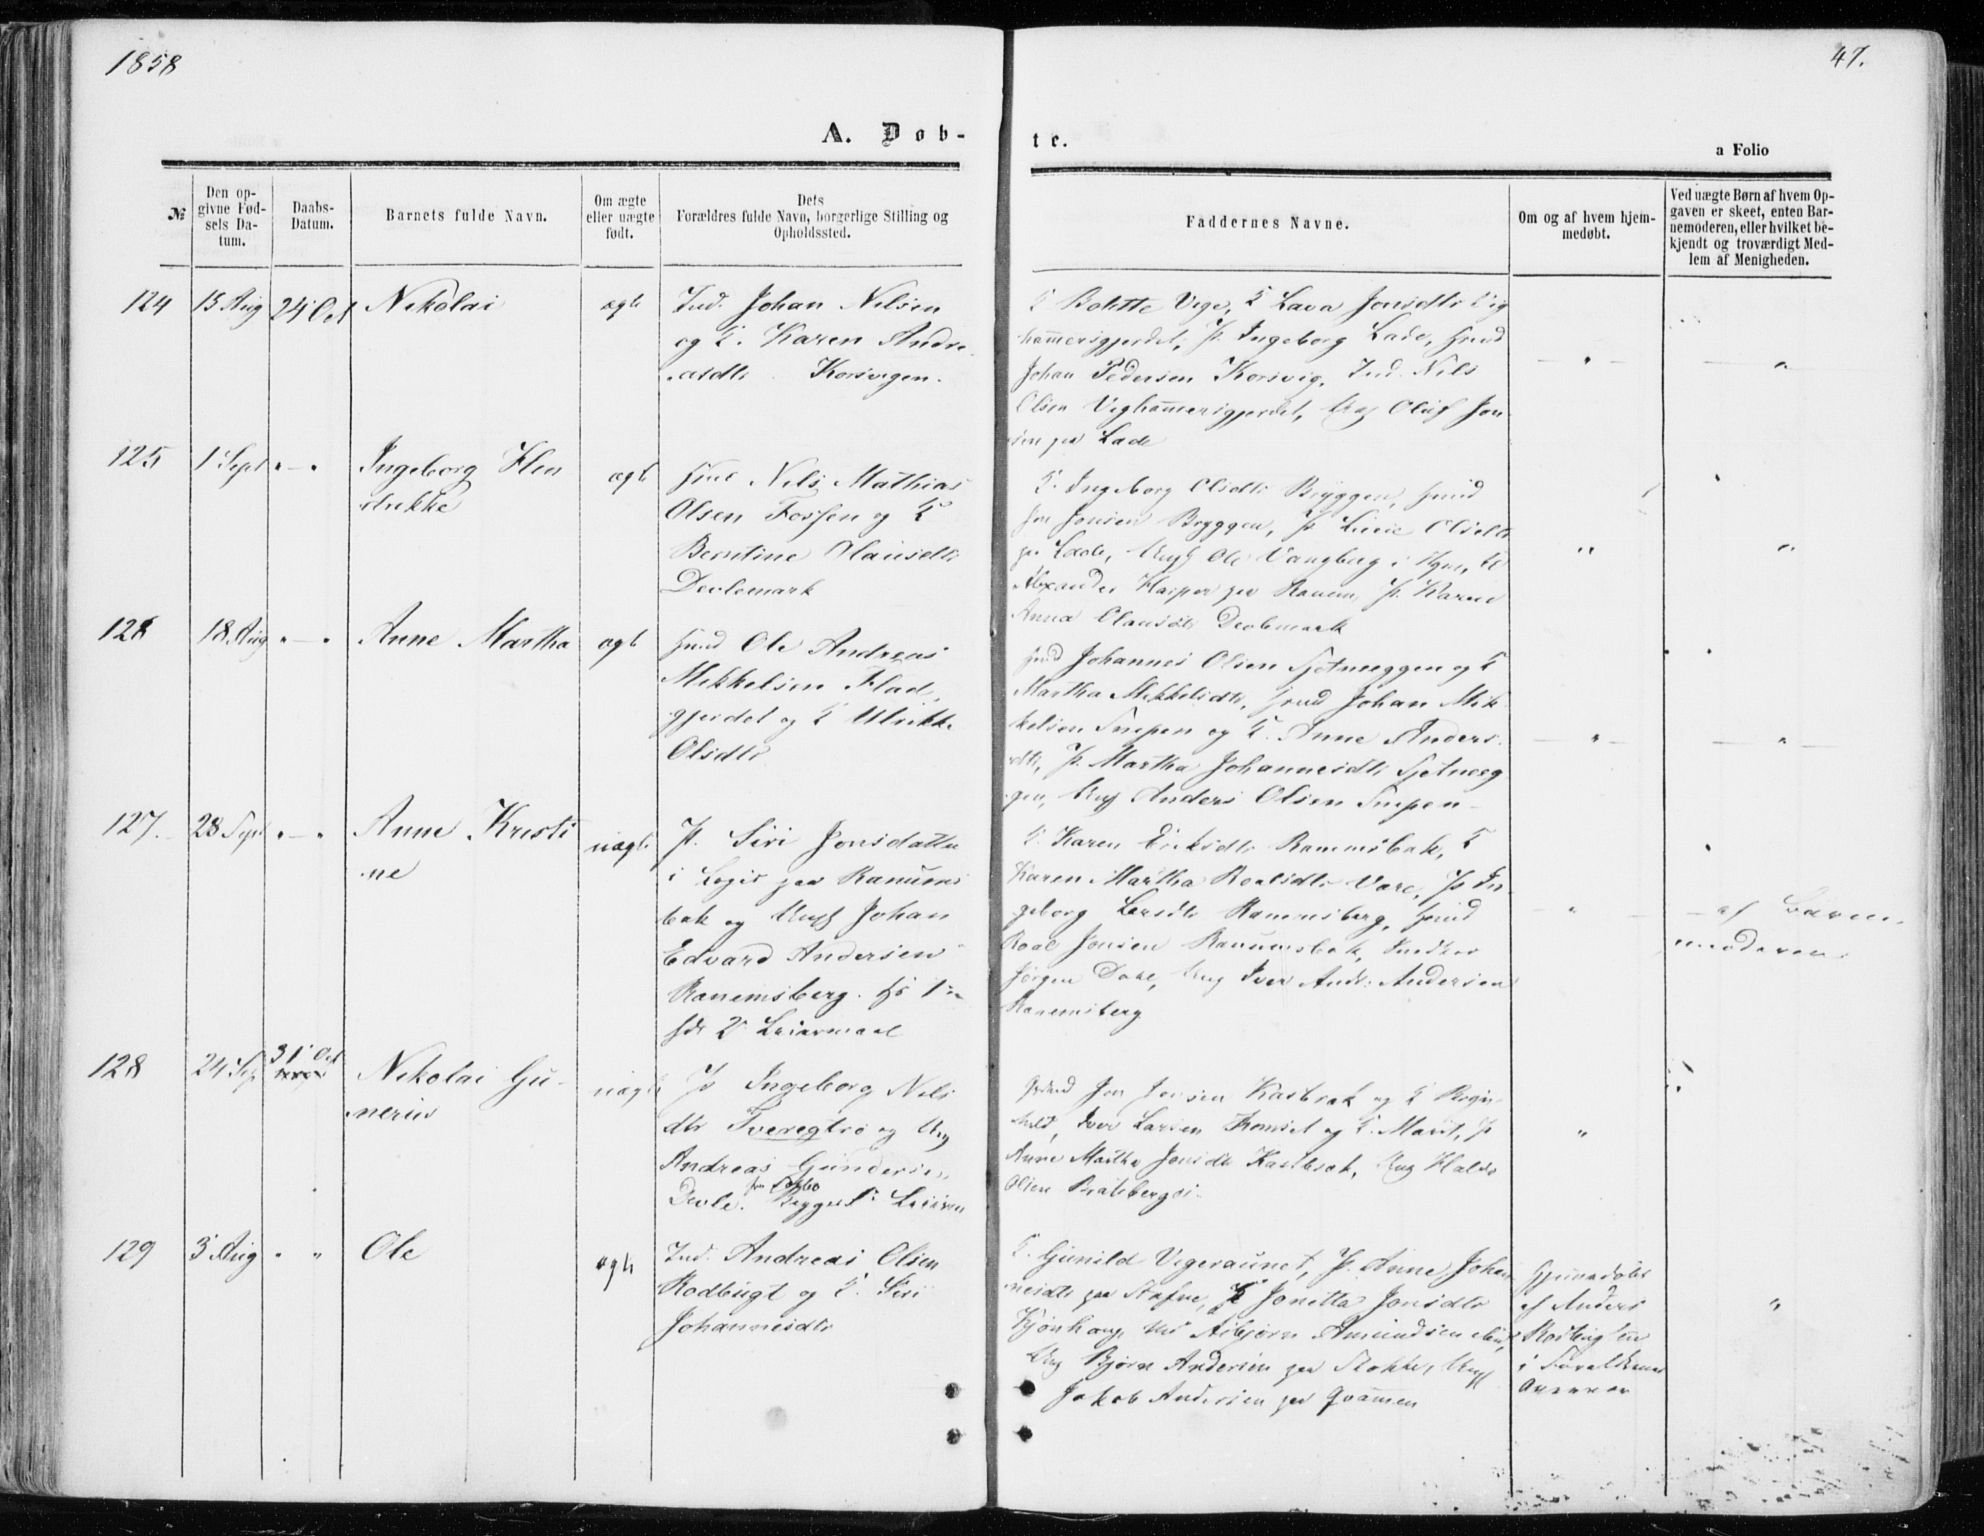 1858
47.
A. Døb-
te.
a Folio
№
Den op-
givne Fød-
sels Da-
tum.
Daabs-
Datum.
Barnets fulde Navn.
Om ægte
eller uægte
født.
Dets
Forældres fulde Navn, borgerlige Stilling og
Opholdssted.
Faddernes Navne.
Om og af hvem hjem-
medøbt.
Ved uægte Børn af hvem Op-
gaven er skeet, enten Bar-
nemoderen, eller hvilket be-
kjendt og troværdigt Med-
lem af Menigheden.
124
15 Aug
24 Oct
Nikolai
ægte
Ind. Johan Nilsen
og K. Karen Andre
asdtr Korsvigen.
K Bolette Vige, K Lava Jonsdtr Vig
hammersgjerdet, P. Ingeborg Lade, Hmd
Johan Pedersen Korsvig, Ind. Nils
Olsen Veghammersgjerdet, Ung Oluf Jon
sen paa Lade
125
1 Sept
" — "
Ingeborg Hen
drikke
ægte
Hmd Nils Mathias
Olsen Fossen og K
Berntine Clausdtr
Devlemark
K. Ingeborg Olsdtr Bryggen, Hmd
Jon Jonsen Bryggen, P. Olsdtr
paa Lade, Ungk Ole Vangberg i
Alexander Kasper paa Ranem, P. Karen
Anna Clausdtr Devlemark
126
18 Aug
" — "
Anne Martha
ægte
Hmd Ole Andreas
Mikkelsen Flad
gjerdet og K Ulrikke
Olsdtr
Hmd Johannes Olsen Sjetneeggen og K
Martha Mikkelsdtr, Hmd Johan Mik
kelsen Smpen og K. Anne Anders
dtr, P. Martha Johannesdtr Sjetneeg
gen, Ung Anders Olsen Smpen
127
28 Sept
" — "
Anne Kristi
ne
uægte
P. Siri Jonsdatter
i Logis paa Ranums
bak og Ungk Johan
Edvard Andersen
Ranemsberg. Hs 1ste
hds 2 Leiermaal
K. Karen Eriksdtr Ranemsbak, K
Karen Martha Roaldsdtr Vare, P. In
geborg Larsdtr Ranemsberg, Hmd
Roal Jonsen Ranumsbak, Snedker
Jørgen Dahl, Ung Iver Andr: Andersen
Ranemsberg
af Barne
moderen
128
24 Sep
31 Oct
Nikolai Gu
nerius
uægte
P Ingeborg Nils
dtr Tveregtrø og Ung
Andreas Gundersen
Devle. Begges 1ste Leierm
Jon Jonsen Kastbrak og K Ragn
hild, Iver Larsen Tromset og K. Marit, P
Anne Martha Jonsdtr Kastbrak, Ung Halvor
Olsen Bratsbergsi
129
3 Aug
" "
Ole
ægte
Ind. Andreas Olsen
Rodbugt og K. Siri
Johannesdtr
K. Gunild Vigeraunet, P. Anne Johan
nesdtr paa Stafne, P Jonetta Jonsdtr
Asbjørn Amundsen
Ung Bjørn Andersen paa Stokke, Ung
Jakob Andersen paa Qvammen
Hjemdøbt
af Anders
Rodbugten
i Forældrenes